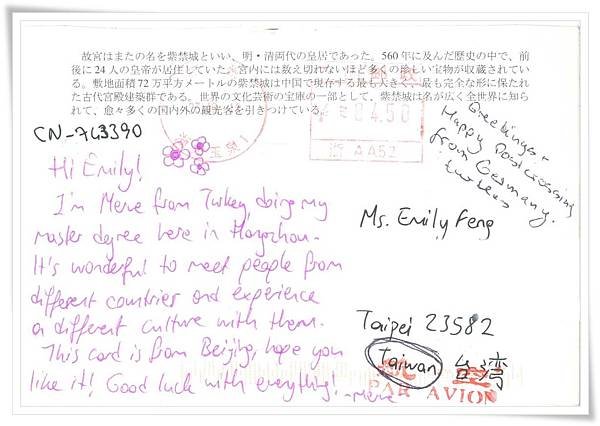 故宮はまたの名を紫禁城といい、明・清両代の皇居であった。560年に及んだ歴史の中で、前
後に24人の皇帝が居住していた。宮内には数え切れないほど多くの珍しい宝物が収蔵されてい
る。敷地面積72万平方メートルの紫禁城は中国で現存する最も大きく、最も完全な形に保たれ
た古代宮殿建築群である。世界の文化芸術の宝庫の一部として、紫禁城は名が広く全世界に知ら
れて、愈々多くの国内外の観光客を引きつけている。
CN-743390
04.50
浙 AA52
Greetings +
Happy Postcrossing
from Germany.
Hi Emily!
I'm Merve from Turkey, doing my
master degree here in Hangzhou.
It's wonderful to meet people from
different countries and experience
a different culture with them.
This card is from Beijing, hope you
like it! Good luck with everything!
-Merve
Ms. Emily Feng
Taipei 23582
Taiwan 台湾
PAR AVION